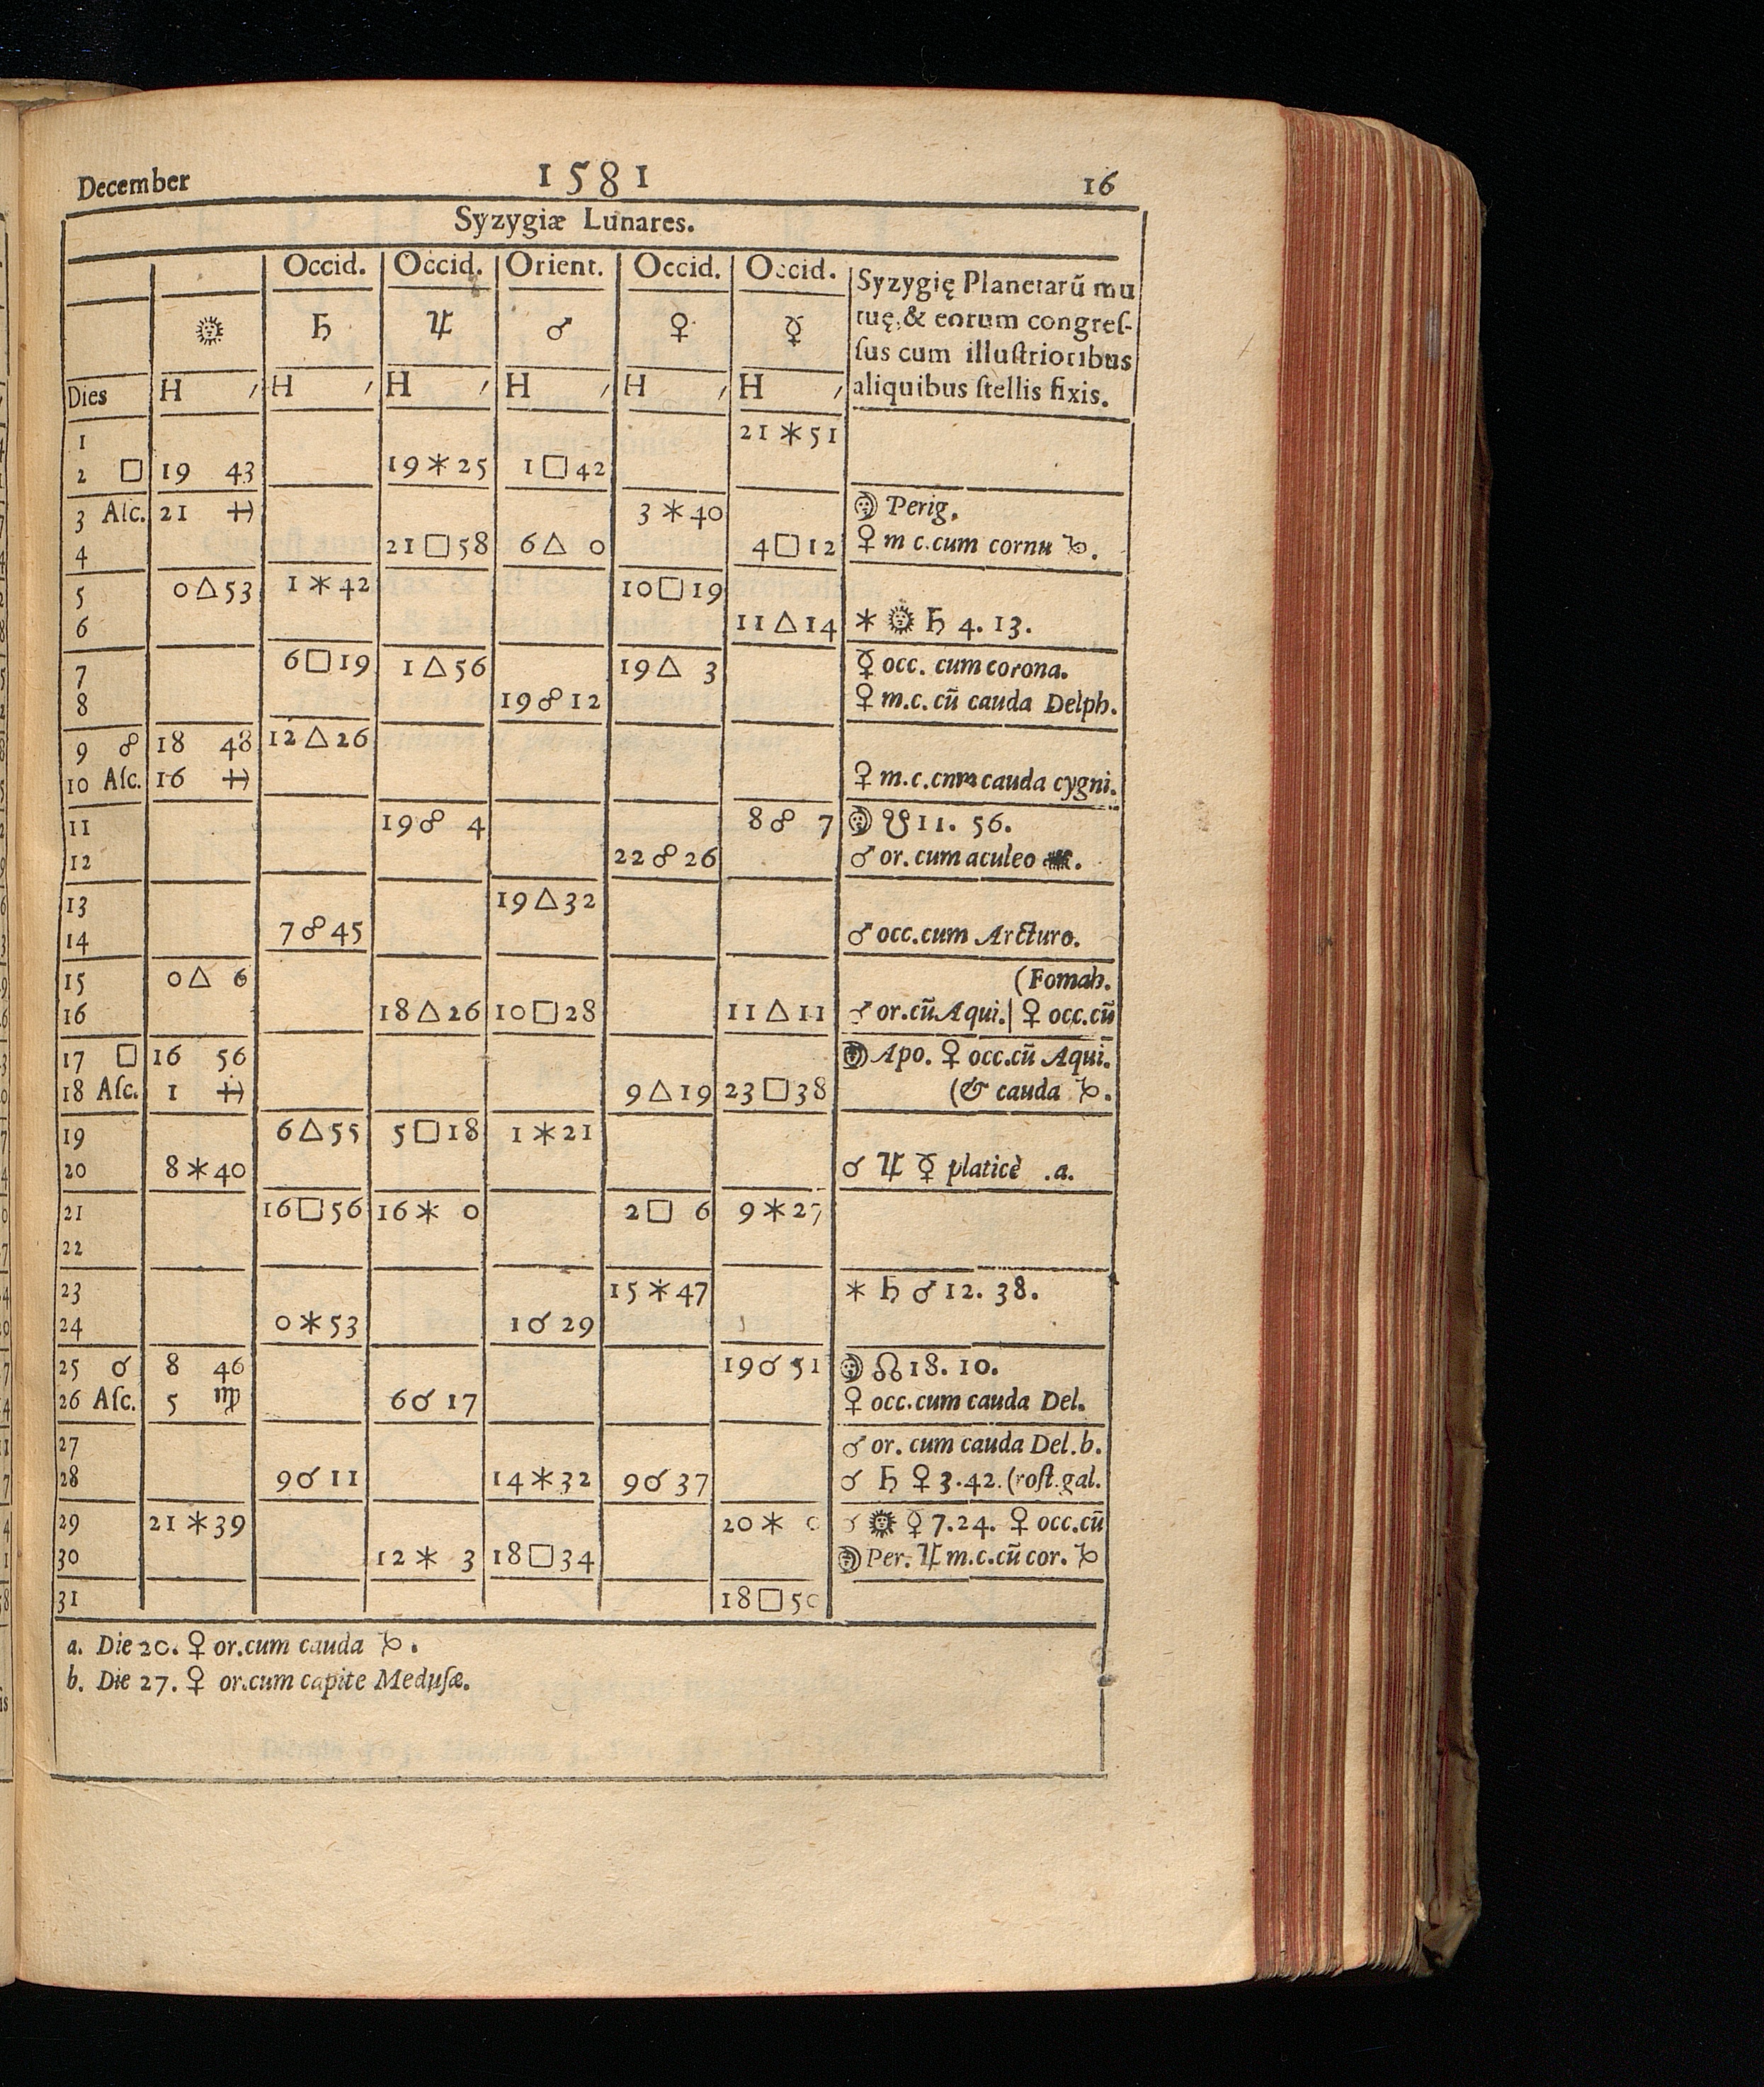 December 1581 16
Syzygiæ Lunares.
Occid. Occid. Orient. Occid. Occid. Syzygię Planetarū mu
☉ ♄ ♃ ♂ ♀ ☿ tuę, & eorum congreſ-
ſus cum illuſtrioribus
Dies H ′ H ′ H ′ H ′ H ′ H ′ aliquibus ſtellis fixis.
1 21 ⚹ 51
2 □ 19 43 19 ⚹ 25 1 □ 42
3 Aſc. 21 ♓ 3 ⚹ 40 ☽ Perig.
4 21 □ 58 6 △ 0 4 □ 12 ♀ m c. cum cornu ♑.
5 0 △ 53 1 ⚹ 42 10 □ 19
6 11 △ 14 ⚹ ☉ ♄ 4. 13.
7 6 □ 19 1 △ 56 19 △ 3 ☿ occ. cum corona.
8 19 ☍ 12 ♀ m.c. cū cauda Delph.
9 ☍ 18 48 12 △ 26
10 Aſc. 16 ♓ ♀ m.c. cnm cauda cygni.
11 19 ☍ 4 8 ☍ 7 ☽ ☋ 11. 56.
12 22 ☍ 26 ♂ or. cum aculeo
13 19 △ 32
14 7 ☍ 45 ♂ occ. cum Arcturo.
15 0 △ 6 (Fomah.
16 18 △ 26 10 □ 28 11 △ 11 ♂ or. cū Aqui. | ♀ occ. cū
17 □ 16 56 ☽ Apo. ♀ occ. cū Aqui.
18 Aſc. 1 ♓ 9 △ 19 23 □ 38 (& cauda ♑.
19 6 △ 55 5 □ 18 1 ⚹ 21
20 8 ⚹ 40 ☌ ♃ ☿ platicè .a.
21 16 □ 56 16 ⚹ 0 2 □ 6 9 ⚹ 27
22
23 15 ⚹ 47 ⚹ ♄ ♂ 12. 38.
24 0 ⚹ 53 1 ☌ 29
25 ☌ 8 46 19 ☌ 51 ☽ ☊ 18. 10.
26 Aſc. 5 ♍ 6 ☌ 17 ♀ occ. cum cauda Del.
27 ♂ or. cum cauda Del. b.
28 9 ☌ 11 14 ⚹ 32 9 ☌ 37 ☌ ♄ ♀ 3. 42. (roſt. gal.
29 21 ⚹ 39 20 ⚹ 0 ☌ ☉ ☿ 7. 24. ♀ occ. cū
30 12 ⚹ 3 18 □ 34 ☽ Per. ♃ m.c. cū cor. ♑
31 18 □ 50
a. Die 20. ♀ or. cum cauda ♑.
b. Die 27. ♀ or. cum capite Meduſæ.